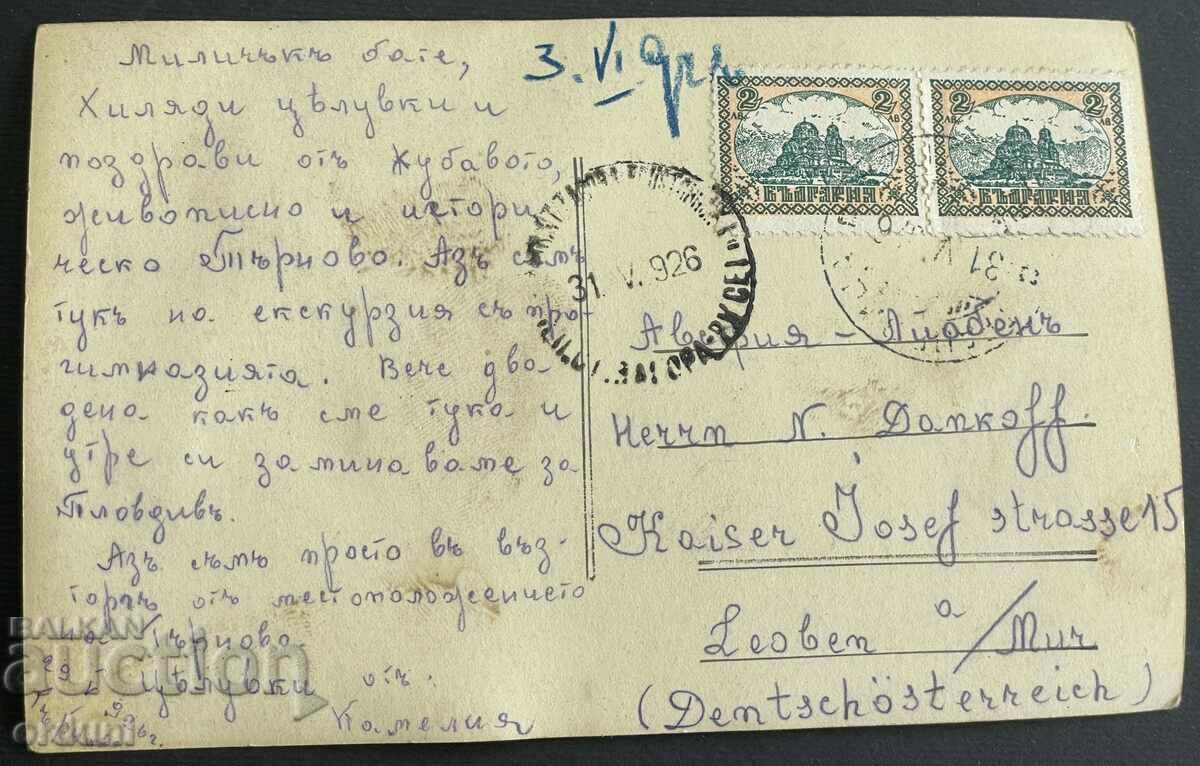 Миличъкъ бате,
Хиляди цѣлувки и
поздрави отъ хубавото,
живописно и истори-
ческо Търново. Азъ съмъ
тукъ на екскурзия съ про-
гимназията. Вече два
дена какъ сме тука и
утре си заминаваме за
Пловдивъ.
Азъ съмъ просто въ въз-
торгъ отъ местоположението
на Търново.
цѣлувки отъ
Камелия
3. VI
2 2
ЛВ ЛВ
БЪЛГАРИЯ БЪЛГАРИЯ
31. V. 926
ЗАГОРА-РУСЕ
31 V
Австрия - Лйобенъ
Herrn N. Dankoff
Kaiser Josef strasse 15
Leoben a/Mur
(Deutschösterreich)
BALKAN
auction
orduni